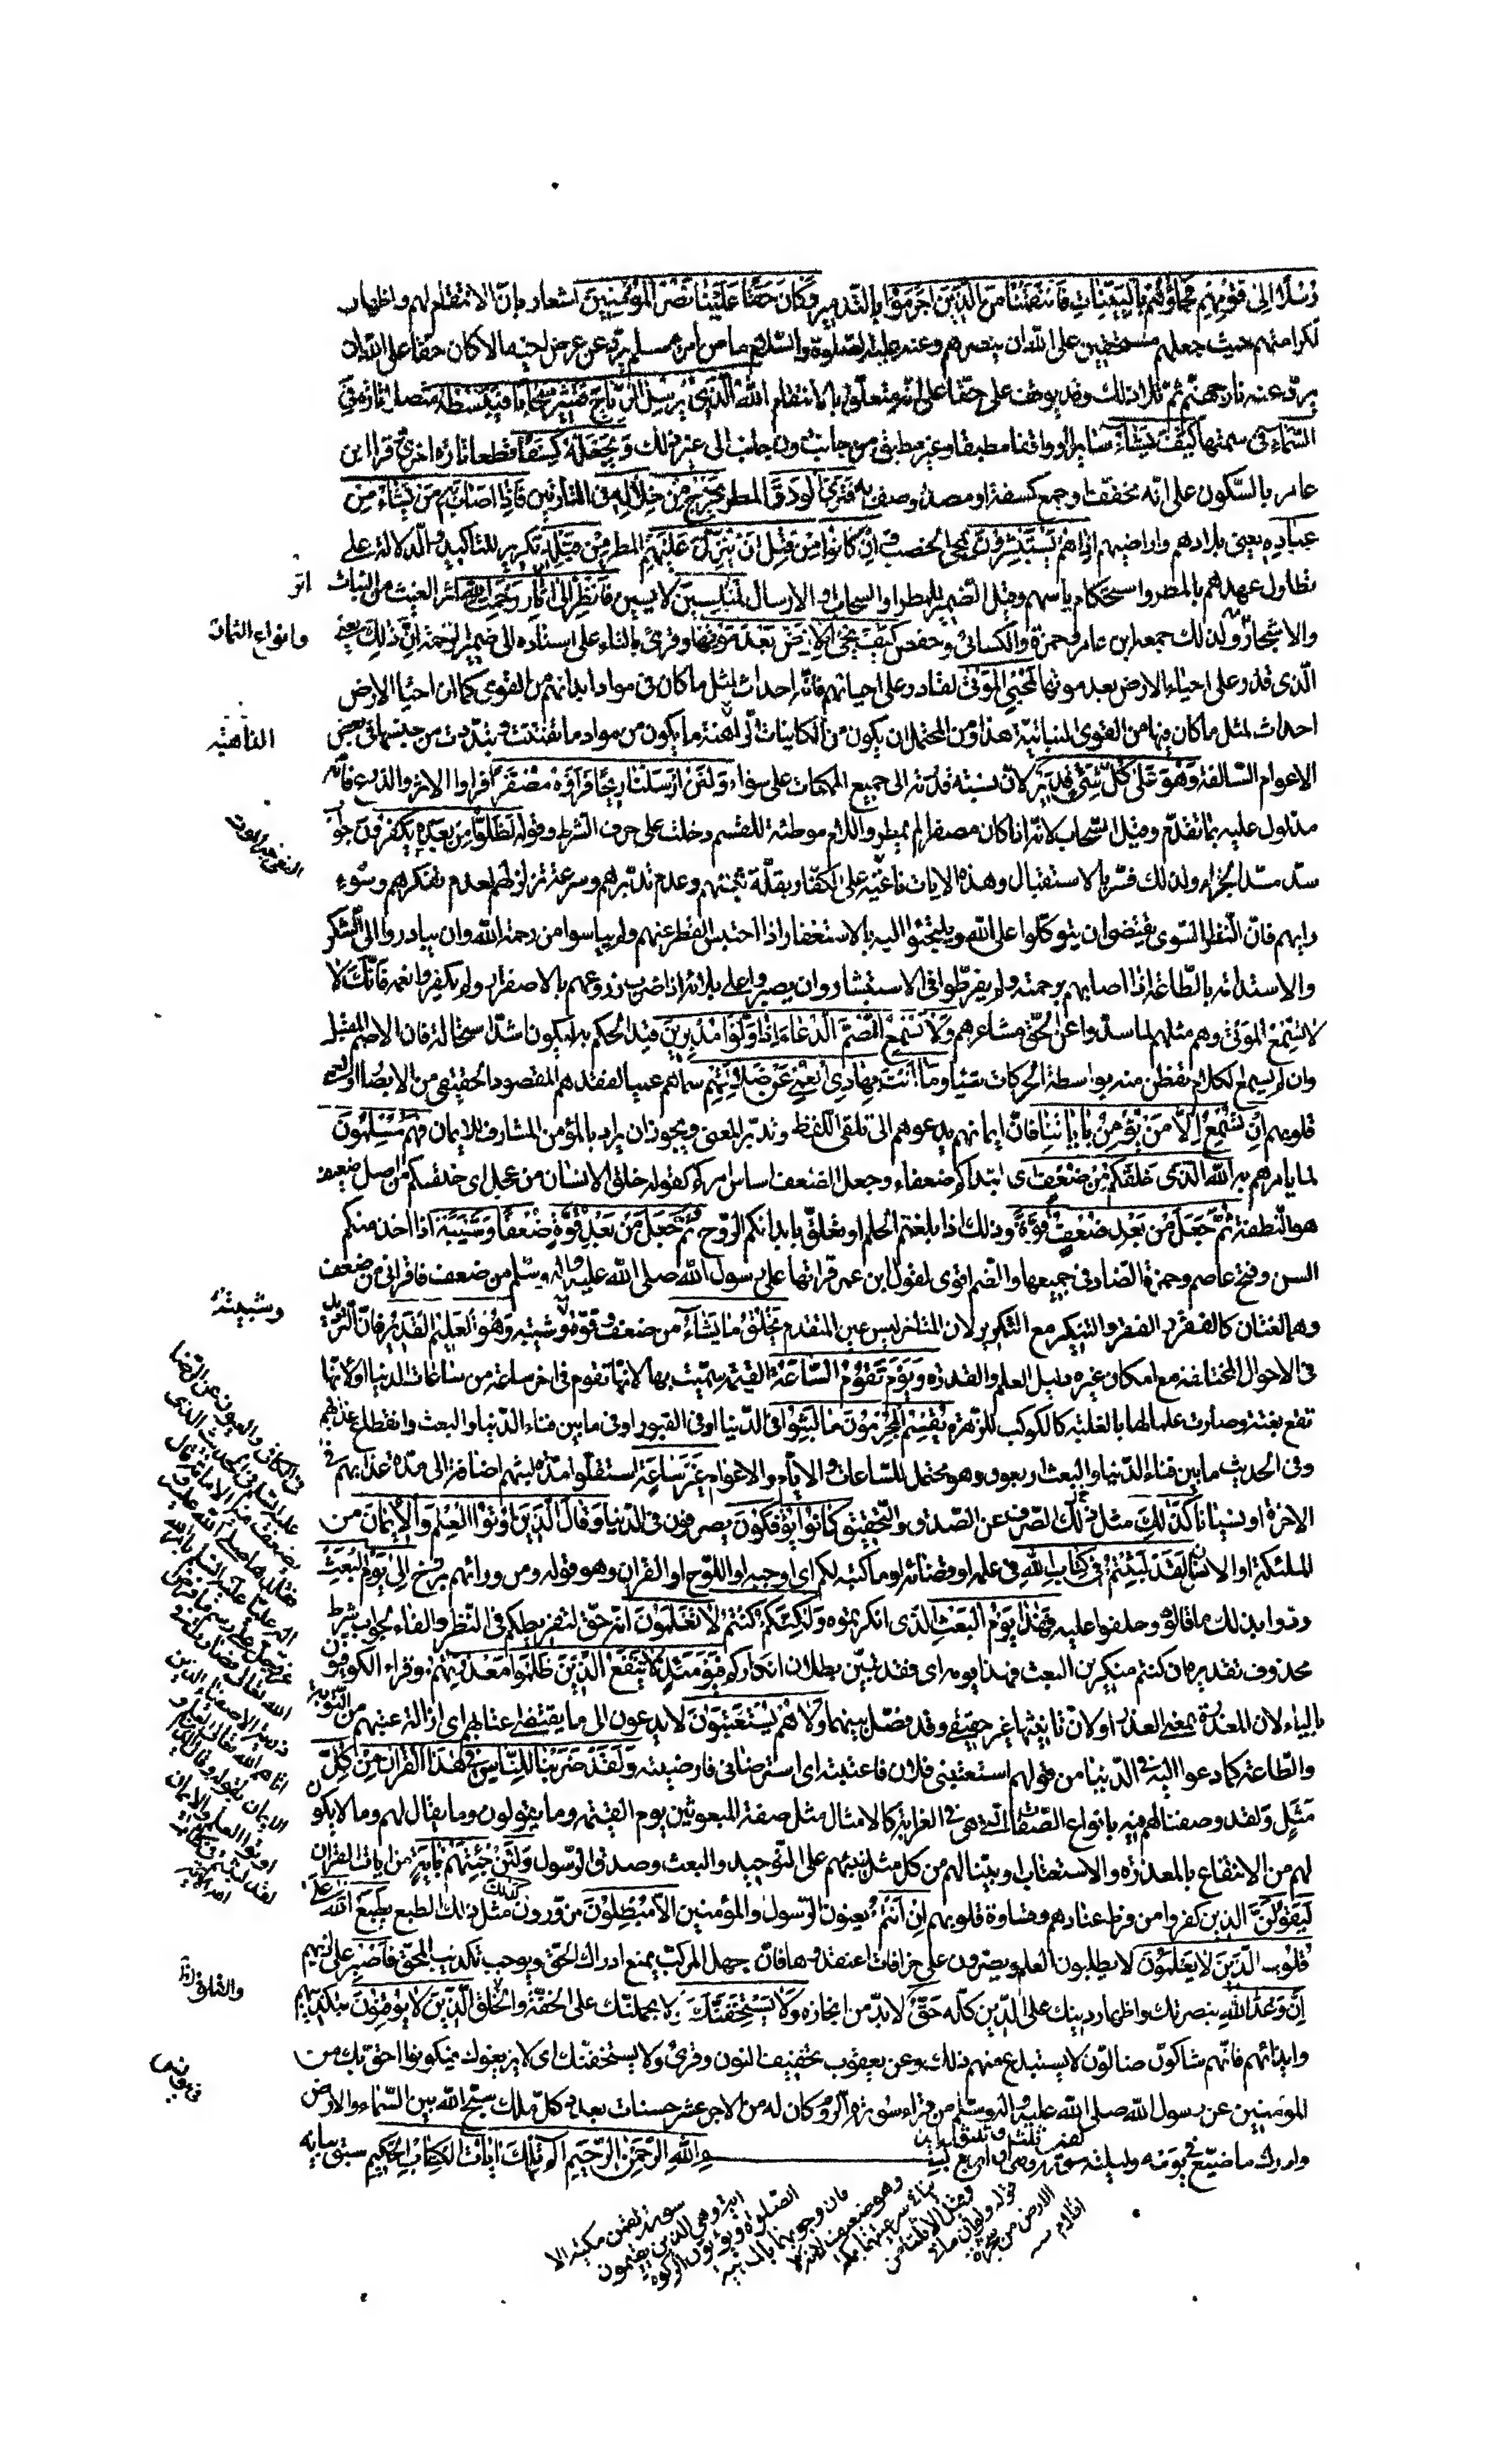 رُسُلًا اِلى قَوْمِهِمْ فَجَاؤُهُمْ بِالْبَيِّنَاتِ فَانْتَقَمْنَا مِنَ الَّذِينَ اَجْرَمُوا بالتدمير وَكَانَ حَقًّا عَلَيْنَا نَصْرُ الْمُؤْمِنِينَ اشعار بان الانتقام لهم واظهار
لكرامتهم حيث جعلهم مستحقين على الله ان ينصرهم وعنه عليه الصلوة والسلام ما من امرء مسلم يرد عن عرض اخيه الا كان حقا على الله ان
يرد عنه نار جهنم ثم تلا ذلك وقد يوقف على حقا على انه متعلق بالانتقام اَللهُ الَّذِي يُرْسِلُ الرِّيَاحَ فَتُثِيرُ سَحَابًا فَيَبْسُطُهُ متصلا تارة فِي
السَّمَاءِ فى سمتها كَيْفَ يَشَاءُ سايرا وواقفا مطبقا وغير مطبق من جانب دون جانب الى غير ذلك وَيَجْعَلُهُ كِسَفًا قطعا تارة اخرى وقرا ابن
عامر بالسكون على انه مخفف او جمع كسفة او مصدر وصف به فَتَرَى الْوَدْقَ المطر يَخْرُجُ مِنْ خِلَالِهِ فى التارتين فَاِذَا اَصَابَ بِهِ مَنْ يَشَاءُ مِنْ
عِبَادِهِ يعنى بلادهم واراضيهم اِذَا هُمْ يَسْتَبْشِرُونَ بمجئ الخصب وَاِنْ كَانُوا مِنْ قَبْلِ اَنْ يُنَزَّلَ عَلَيْهِمْ المطر مِنْ قَبْلِهِ تكرير للتاكيد والدلالة على
تطاول عهدهم بالمطر واستحكام ياسهم وقيل الضمير للمطر او السحاب او الارسال لَمُبْلِسِينَ لايسين فَانْظُرْ اِلى آثَارِ رَحْمَتِ اللهِ اثر الغيث من النبات
والاشجار ولذلك جمعه ابن عامر وحمزة والكسائى وحفص كَيْفَ يُحْيِ الْاَرْضَ بَعْدَ مَوْتِهَا وقرئ بالتاء على اسناده الى ضمير الرحمة اِنَّ ذٰلِكَ يعنى
الذى قدر على احياء الارض بعد موتها لَمُحْيِي الْمَوْتى لقادر على احيائهم فانه احداث لمثل ما كان فى مواد ابدانهم من القوى كما ان احياء الارض
احداث لمثل ما كان فيها من القوى النباتية هذا ومن المحتمل ان يكون من الكاينات الراهنة ما يكون من مواد ما تفتتت وتبددت من جنسها فى بعض
الاعوام السالفة وَهُوَ عَلى كُلِّ شَيْءٍ قَدِيرٌ لان نسبة قدرته الى جميع الممكنات على سواء وَلَئِنْ اَرْسَلْنَا رِيحًا فَرَاَوْهُ مُصْفَرًّا فراوا الاثر والذرع فانه
مدلول عليه بما تقدم وقيل السحاب لانه اذا كان مصفرا لم يمطر واللام موطئة للقسم دخلت على حرف الشرط وقوله لَظَلُّوا مِنْ بَعْدِهِ يَكْفُرُونَ جواب
سد مسد الجزاء ولذلك فسر بالاستقبال وهذه الايات ناعية على الكفار بقلة تثبتهم وعدم تدبرهم وسرعة تزلزلهم لعدم تفكرهم وسوء
رايهم فان النظر السوى يقتضى ان يتوكلوا على الله ويلتجئوا اليه بالاستغفار اذا احتبس القطر عنهم ولم يياسوا من رحمة الله وان يبادروا الى الشكر
والاستدامة بالطاعة اذا اصابهم برحمته ولم يفرطوا فى الاستبشار وان يصبروا على بلائه اذا ضرب زروعهم بالاصفرار ولم يكفروا نعمه فَاِنَّكَ لَا
لَا تُسْمِعُ الْمَوْتى وهم مثلهم لما سدوا عن الحق مشاعرهم وَلَا تُسْمِعُ الصُّمَّ الدُّعَاءَ اِذَا وَلَّوْا مُدْبِرِينَ قيد الحكم به ليكون اشد استحالة فان الاصم المقبل
وان لم يسمع الكلام تفطن منه بواسطة الحركات شيئا وَمَا اَنْتَ بِهَادِي الْعُمْيِ عَنْ ضَلَالَتِهِمْ سماهم عميا لفقدهم المقصود الحقيقى من الابصار او لعمى
قلوبهم اِنْ تُسْمِعُ اِلَّا مَنْ يُؤْمِنُ بِآيَاتِنَا فان ايمانهم يدعوهم الى تلقى اللفظ وتدبر المعنى ويجوز ان يراد بالمؤمن المشارف للايمان فَهُمْ مُسْلِمُونَ
لما يامرهم به اَللهُ الَّذِي خَلَقَكُمْ مِنْ ضَعْفٍ اى ابتداكم ضعفاء وجعل الضعف اساس امركم كقوله خلق الانسان من عجل او خلقكم من اصل ضعيف
هو النطفة ثُمَّ جَعَلَ مِنْ بَعْدِ ضَعْفٍ قُوَّةً وذلك اذا بلغتم الحلم او تعلق بابدانكم الروح ثُمَّ جَعَلَ مِنْ بَعْدِ قُوَّةٍ ضَعْفًا وَشَيْبَةً اذا اخذ منكم
السن وفتح عاصم وحمزة الضاد فى جميعها والضم اقوى لقول ابن عمر قراتها على رسول الله صلى الله عليه واله وسلم من ضعف فاقرانى من ضعف
وهما لغتان كالفقر والفقر والتنكير مع التكرير لان المتاخر ليس عين المتقدم يَخْلُقُ مَا يَشَاءُ من ضعف وقوة وشيبة وَهُوَ الْعَلِيمُ الْقَدِيرُ فان الترديد
فى الاحوال المختلفة مع امكان غيره دليل العلم والقدرة وَيَوْمَ تَقُومُ السَّاعَةُ القيمة سميت بها لانها تقوم فى اخر ساعة من ساعات الدنيا او لانها
تقع بغتة وصارت علما لها بالغلبة كالكوكب للزهرة يُقْسِمُ الْمُجْرِمُونَ مَا لَبِثُوا فى الدنيا او فى القبور او فى ما بين فناء الدنيا والبعث وانقطاع عذابهم
وفى الحديث ما بين فناء الدنيا والبعث اربعون وهو محتمل للساعات والايام والاعوام غَيْرَ سَاعَةٍ استقلوا مدة لبثهم اضافة الى مدة عذابهم فى
الاخرة او نسيانا كَذٰلِكَ مثل ذلك الصرف عن الصدق والتحقيق كَانُوا يُؤْفَكُونَ يصرفون فى الدنيا وَقَالَ الَّذِينَ اُوتُوا الْعِلْمَ وَالْاِيمَانَ من
الملئكة او الانس لَقَدْ لَبِثْتُمْ فِي كِتَابِ اللهِ فى علمه او قضائه او ما كتبه لكم اى اوجبه او اللوح او القران وهو قوله ومن ورائهم برزخ اِلى يَوْمِ الْبَعْثِ
ردوا بذلك ما قالوه وحلفوا عليه فَهٰذَا يَوْمُ الْبَعْثِ الذى انكرتموه وَلٰكِنَّكُمْ كُنْتُمْ لَا تَعْلَمُونَ انه حق لتفريطكم فى النظر والفاء لجواب شرط
محذوف تقديره ان كنتم منكرين البعث فهذا يومه اى فقد تبين بطلان انكاركم فَيَوْمَئِذٍ لَا يَنْفَعُ الَّذِينَ ظَلَمُوا مَعْذِرَتُهُمْ وقراء الكوفيون
بالياء لان المعذرة بمعنى العذر او لان تانيثها غير حقيقى وقد فصل بينهما وَلَا هُمْ يُسْتَعْتَبُونَ لا يدعون الى ما يقتضى اعتابهم اى ازالة عتبهم من التوبة
والطاعة كما دعوا اليه فى الدنيا من قولهم استعتبنى فلان فاعتبته اى استرضانى فارضيته وَلَقَدْ ضَرَبْنَا لِلنَّاسِ فِي هٰذَا الْقُرْآنِ مِنْ كُلِّ
مَثَلٍ ولقد وصفنا لهم فيه بانواع الصفات التى هى فى الغرابة كالامثال مثل صفة المبعوثين يوم القيمة وما يقولون وما يقال لهم وما لا يكون
لهم من الانتفاع بالمعذرة والاستعتاب او بينا لهم من كل مثل ينبئهم على التوحيد والبعث وصدق الرسول وَلَئِنْ جِئْتَهُمْ بِآيَةٍ من ايات القران
لَيَقُولَنَّ الَّذِينَ كَفَرُوا من فرط عنادهم وقساوة قلوبهم اِنْ اَنْتُمْ يعنون الرسول والمؤمنين اِلَّا مُبْطِلُونَ مزورون كذلك مثل ذلك الطبع يَطْبَعُ اللهُ عَلى
قُلُوبِ الَّذِينَ لَا يَعْلَمُونَ لا يطلبون العلم ويصرون على خرافات اعتقدوها فان جهل المركب يمنع ادراك الحق ويوجب تكذيب المحق فَاصْبِرْ على اذيهم
اِنَّ وَعْدَ اللهِ بنصرتك واظهار دينك على الدين كله حَقٌّ لا بد من انجازه وَلَا يَسْتَخِفَّنَّكَ ولا يحملنك على الخفة والقلق الَّذِينَ لَا يُوقِنُونَ بتكذيبهم
وايذائهم فانهم شاكون ضالون لا يستبدع منهم ذلك وعن يعقوب بتخفيف النون وقرئ ولا يستحقنك اى لا يزيغوك فيكونوا احق بك من
المؤمنين عن رسول الله صلى الله عليه واله وسلم من قراء سورة الروم كان له من الاجر عشر حسنات بعدد كل ملك سبح الله بين السماء والارض
وادرك ما ضيع فى يومه وليلته سورة لقمن وهى اربع وثلثون اية بِسْمِ اللهِ الرَّحْمٰنِ الرَّحِيمِ الٓمٓ تِلْكَ آيَاتُ الْكِتَابِ الْحَكِيمِ سبق بيانه
وانواع الثمار
وشيبة
والقلق